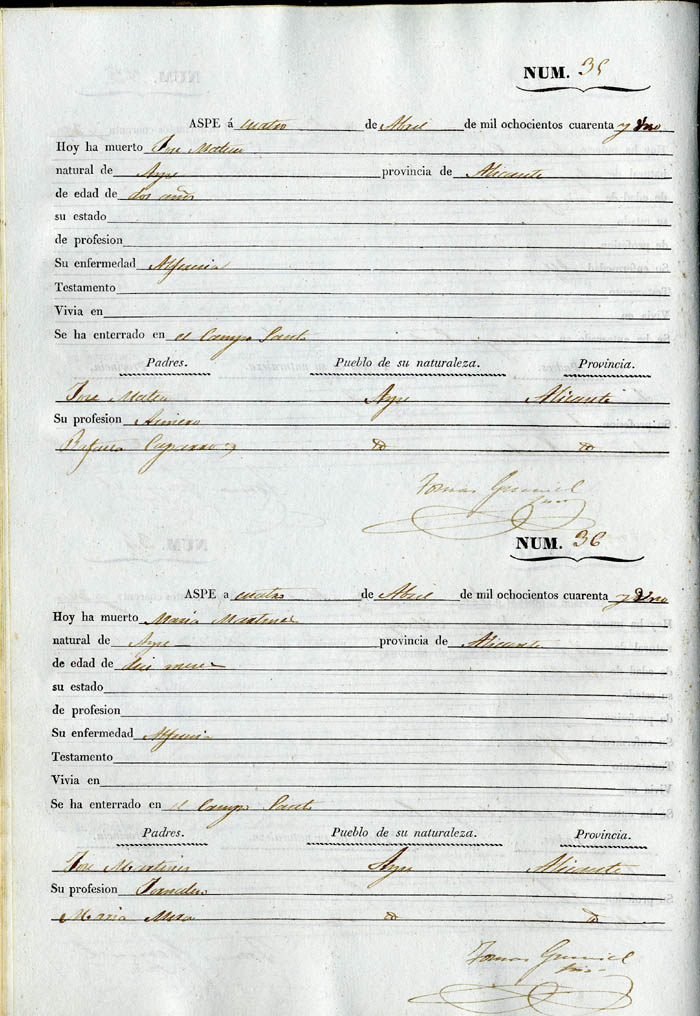 NUM. 35
ASPE á cuatro de Abril de mil ochocientos cuarenta y uno
Hoy ha muerto Jose Mateu
natural de Aspe provincia de Alicante
de edad de dos años
su estado
de profesion
Su enfermedad Alferecia
Testamento
Vivia en
Se ha enterrado en el Campo Santo
Padres. Pueblo de su naturaleza. Provincia.
Jose Mateu Aspe Alicante
Su profesion
Tomas Gumiel
NUM. 36
ASPE a cuatro de Abril de mil ochocientos cuarenta y uno
Hoy ha muerto Maria Martinez
natural de Aspe provincia de Alicante
de edad de meses
su estado
de profesion
Su enfermedad Alferecia
Testamento
Vivia en
Se ha enterrado en el Campo Santo
Padres. Pueblo de su naturaleza. Provincia.
Jose Martinez Aspe Alicante
Su profesion Jornalero
Maria Mira
Tomas Gumiel